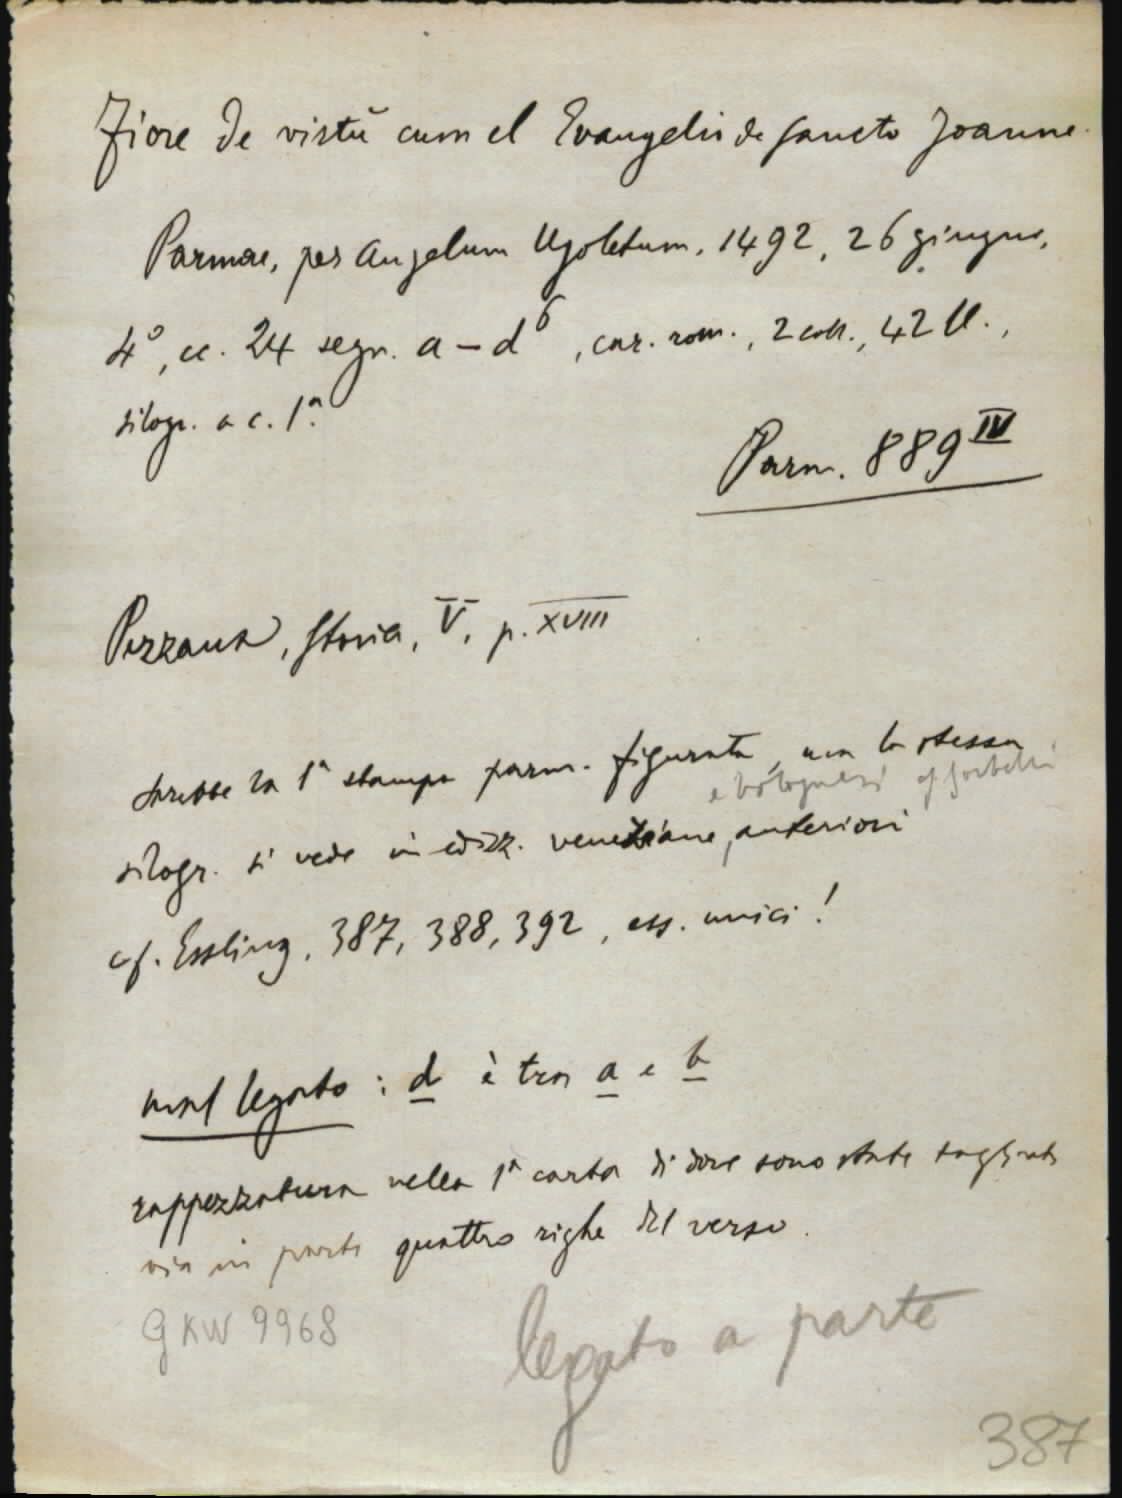 Fiore de virtù cum el Evangelio de sancto Joanne.
Parmae, per Angelum Ugoletum, 1492, 26 giugno,
4°, cc. 24 segn. a – d⁶, car. rom., 2 coll., 42 ll.,
silogr. a c. 1ª.
Parm. 889 IV
Pezzana, Storia, V, p. XVIII
sarebbe la 1ª stampa parm. figurata, ma la stessa
e bolognesi cf
silogr. si vede in edizz. veneziane, anteriori
cf. Essling, 387, 388, 392, ess. unici!
mal legato: d è tra a e b
rappezzatura nella 1ª carta di dove sono state tagliate
via in parte quattro righe del verso.
GKW 9968
legato a parte
387